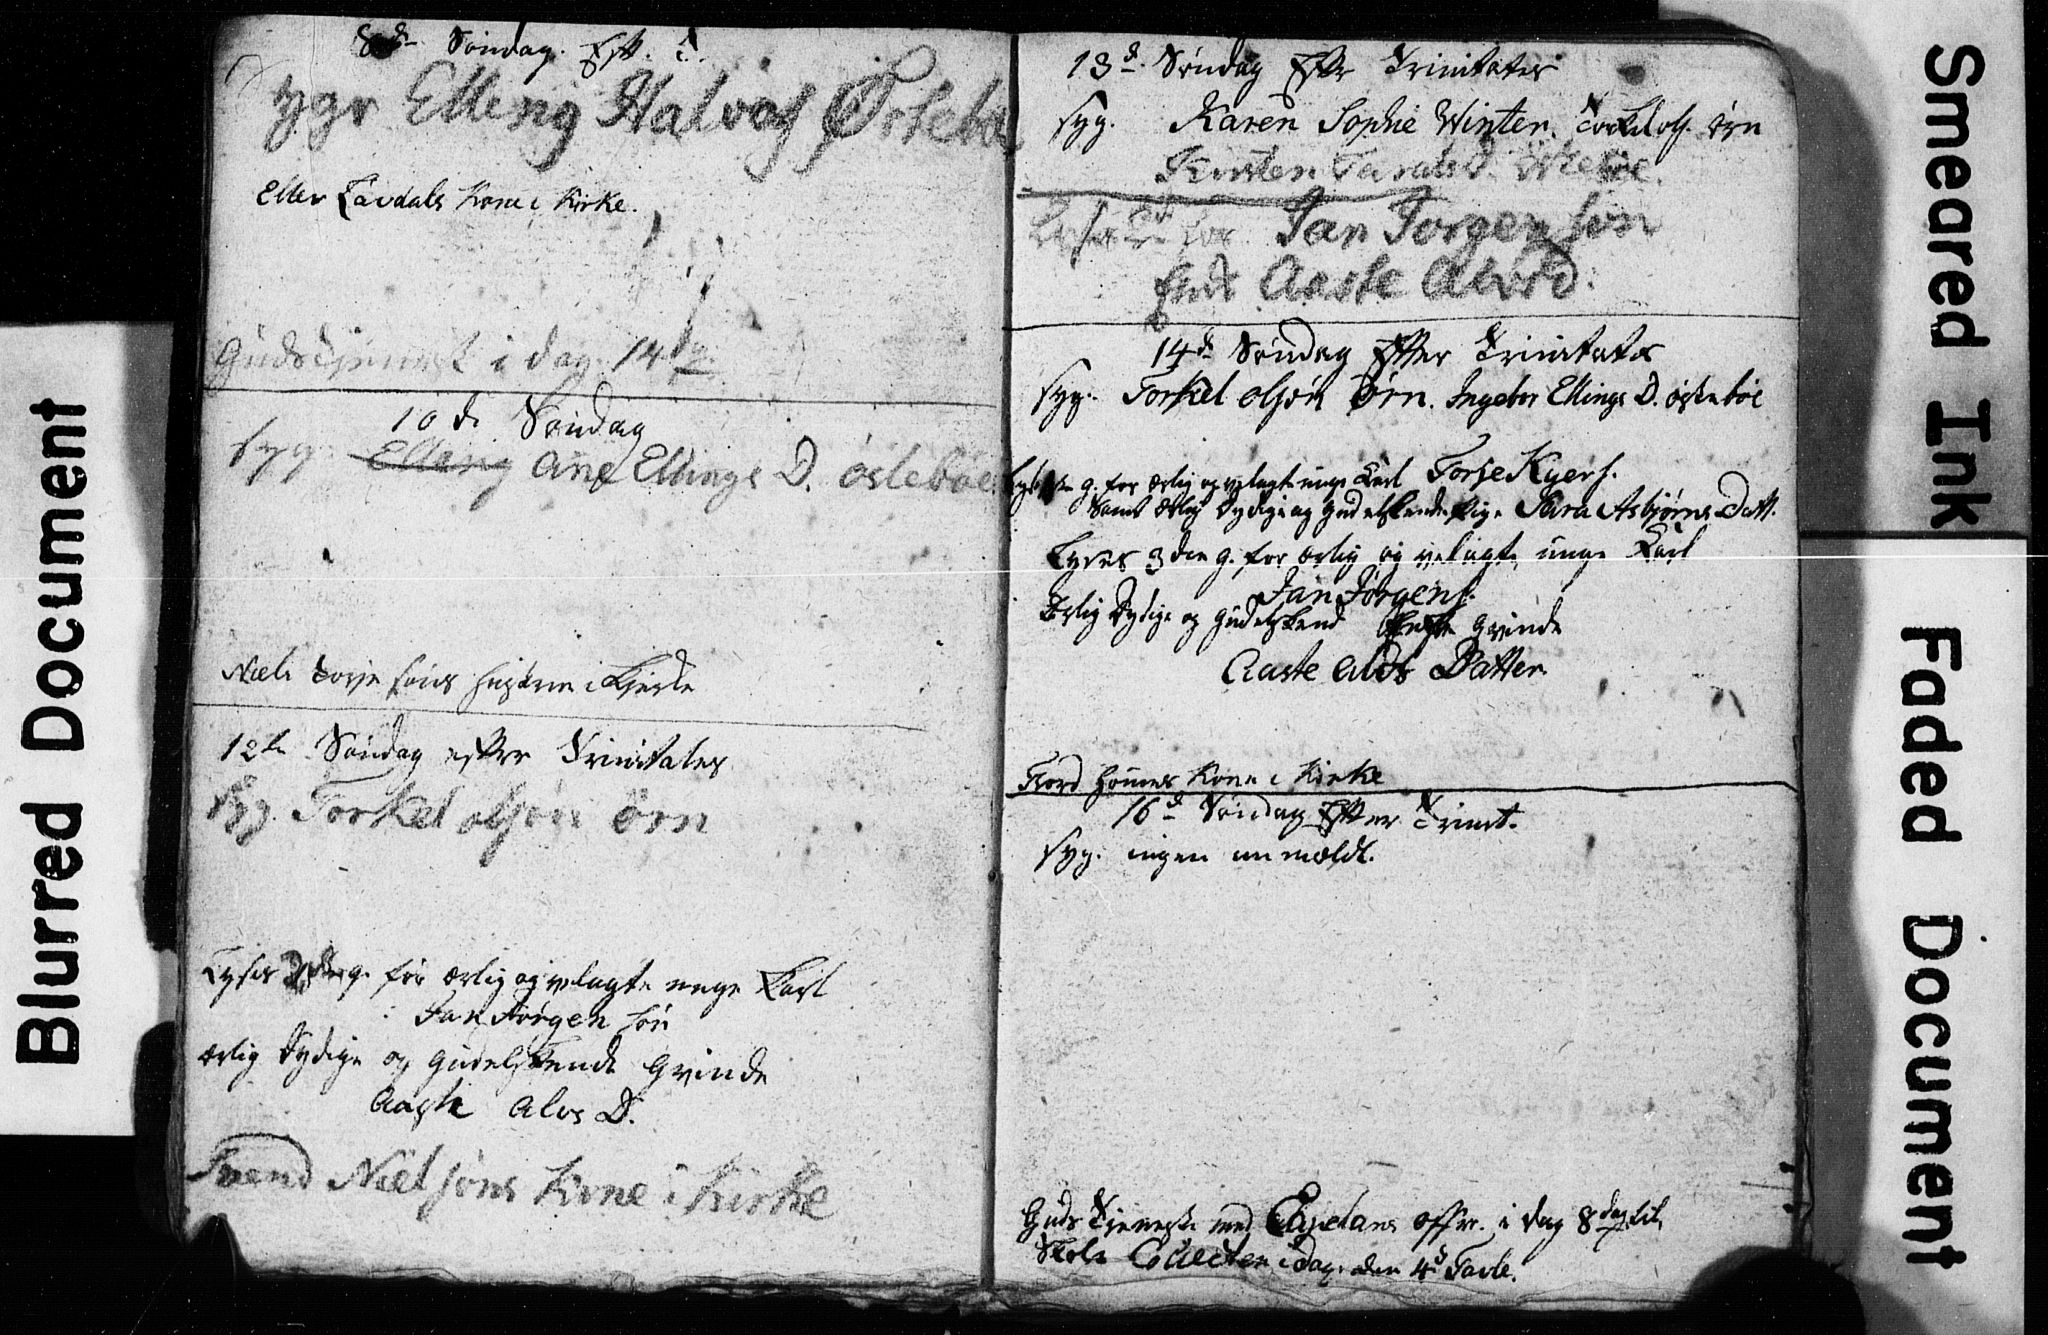 8de Søndag Eft. T.
syge Elleng Halvors Østebøe
Ellev Lavdals Kone i Kirke.
Gudstjeneste i dag 14
10de Søndag
syg. Elleng Ane Ellings D. östeböe
Niels Torje søns hustrue i Kirke
12te Søndag efter Trinitates
Syg. Torkel olsøn Örn
Lyses g. for ærlig og velagte unge Karl
Jan Jörgen sön
ærlig Dydige og gudelskende Qvinde
Aaste Alvs D.
Svend Nielsøns Kone i Kirke
13de Søndag Efter Trinitates
syg. Karen Sophie Winter. Torkel ols. örn
Kirsten Taralds D. östeböe.
Jan Jorgensön
Aaste Alvs D.
14de Søndag Efter Trinitates
syg. Torkel olsön Örn. Ingebor Ellings D. östeböe
g. for ærlig og velagte unge Karl Torje Kyers.
Samt ærlig Dydige og gudelskende Pige Sara Asbjørns Datt.
Lyses 3den g. for ærlig og velagte unge Karl
Jan Jörgens.
Ærlig Dydige og gudelskend Qvinde
Aaste Alvs Datter
Kone i Kirke
16de Søndag Efter Trinit.
syg. ingen anmeldt.
Guds Tjeneste med Capelans offer. i dag 8 dag til
Skole Collecten i dag. den 4de Tavle.